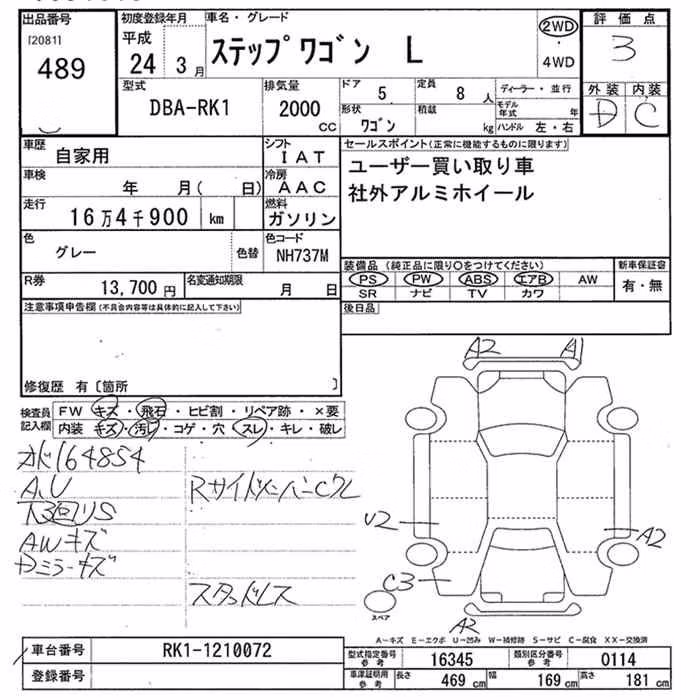 出品番号
[2081]
489
初度登録年月
平成
24年 3月
車名・グレード
ステップワゴン L
2WD
・
4WD
評価点
3
外装 内装
D C
型式
DBA-RK1
排気量
2000
CC
ドア
5
定員
8 人
形状
ワゴン
積載
kg
ディーラー・並行
モデル年式 年
ハンドル 左・右
車歴
自家用
シフト
IAT
車検
年 月( 日)
冷房
AAC
走行
16万4千900 km
燃料
ガソリン
色
グレー
色替
色コード
NH737M
R券
13,700 円
名変通知期限
月 日
セールスポイント(正常に機能するものに限ります)
ユーザー買い取り車
社外アルミホイール
装備品 (純正品に限り○をつけてください)
PS PW ABS エアB AW
SR ナビ TV カワ
新車保証書
有・無
後日品
注意事項申告欄(不具合内容等は具体的に記入して下さい)
修復歴 有〔箇所 〕
検査員
記入欄
FW キズ・飛石・ヒビ割・リペア跡・×要
内装 キズ・汚レ・コゲ・穴・スレ・キレ・破レ
164854
A,U
下3回りS
AWキズ
ミラーキズ
スタッドレス
A2 A1
U2
A2
C3
A2
スペア
A-キズ E-エクボ U-凹み W-補修跡 S-サビ C-腐食 XX-交換済
車台番号
RK1-1210072
登録番号
型式指定番号
参考
16345
類別区分番号
参考
0114
車庫証明用
参考
長さ
469 cm
幅
169 cm
高さ
181 cm